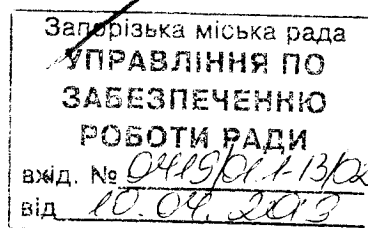 Запорізька міська рада
УПРАВЛІННЯ ПО
ЗАБЕЗПЕЧЕННЮ
РОБОТИ РАДИ
вхід. № 0419/011-13/02
від 10.04.2013